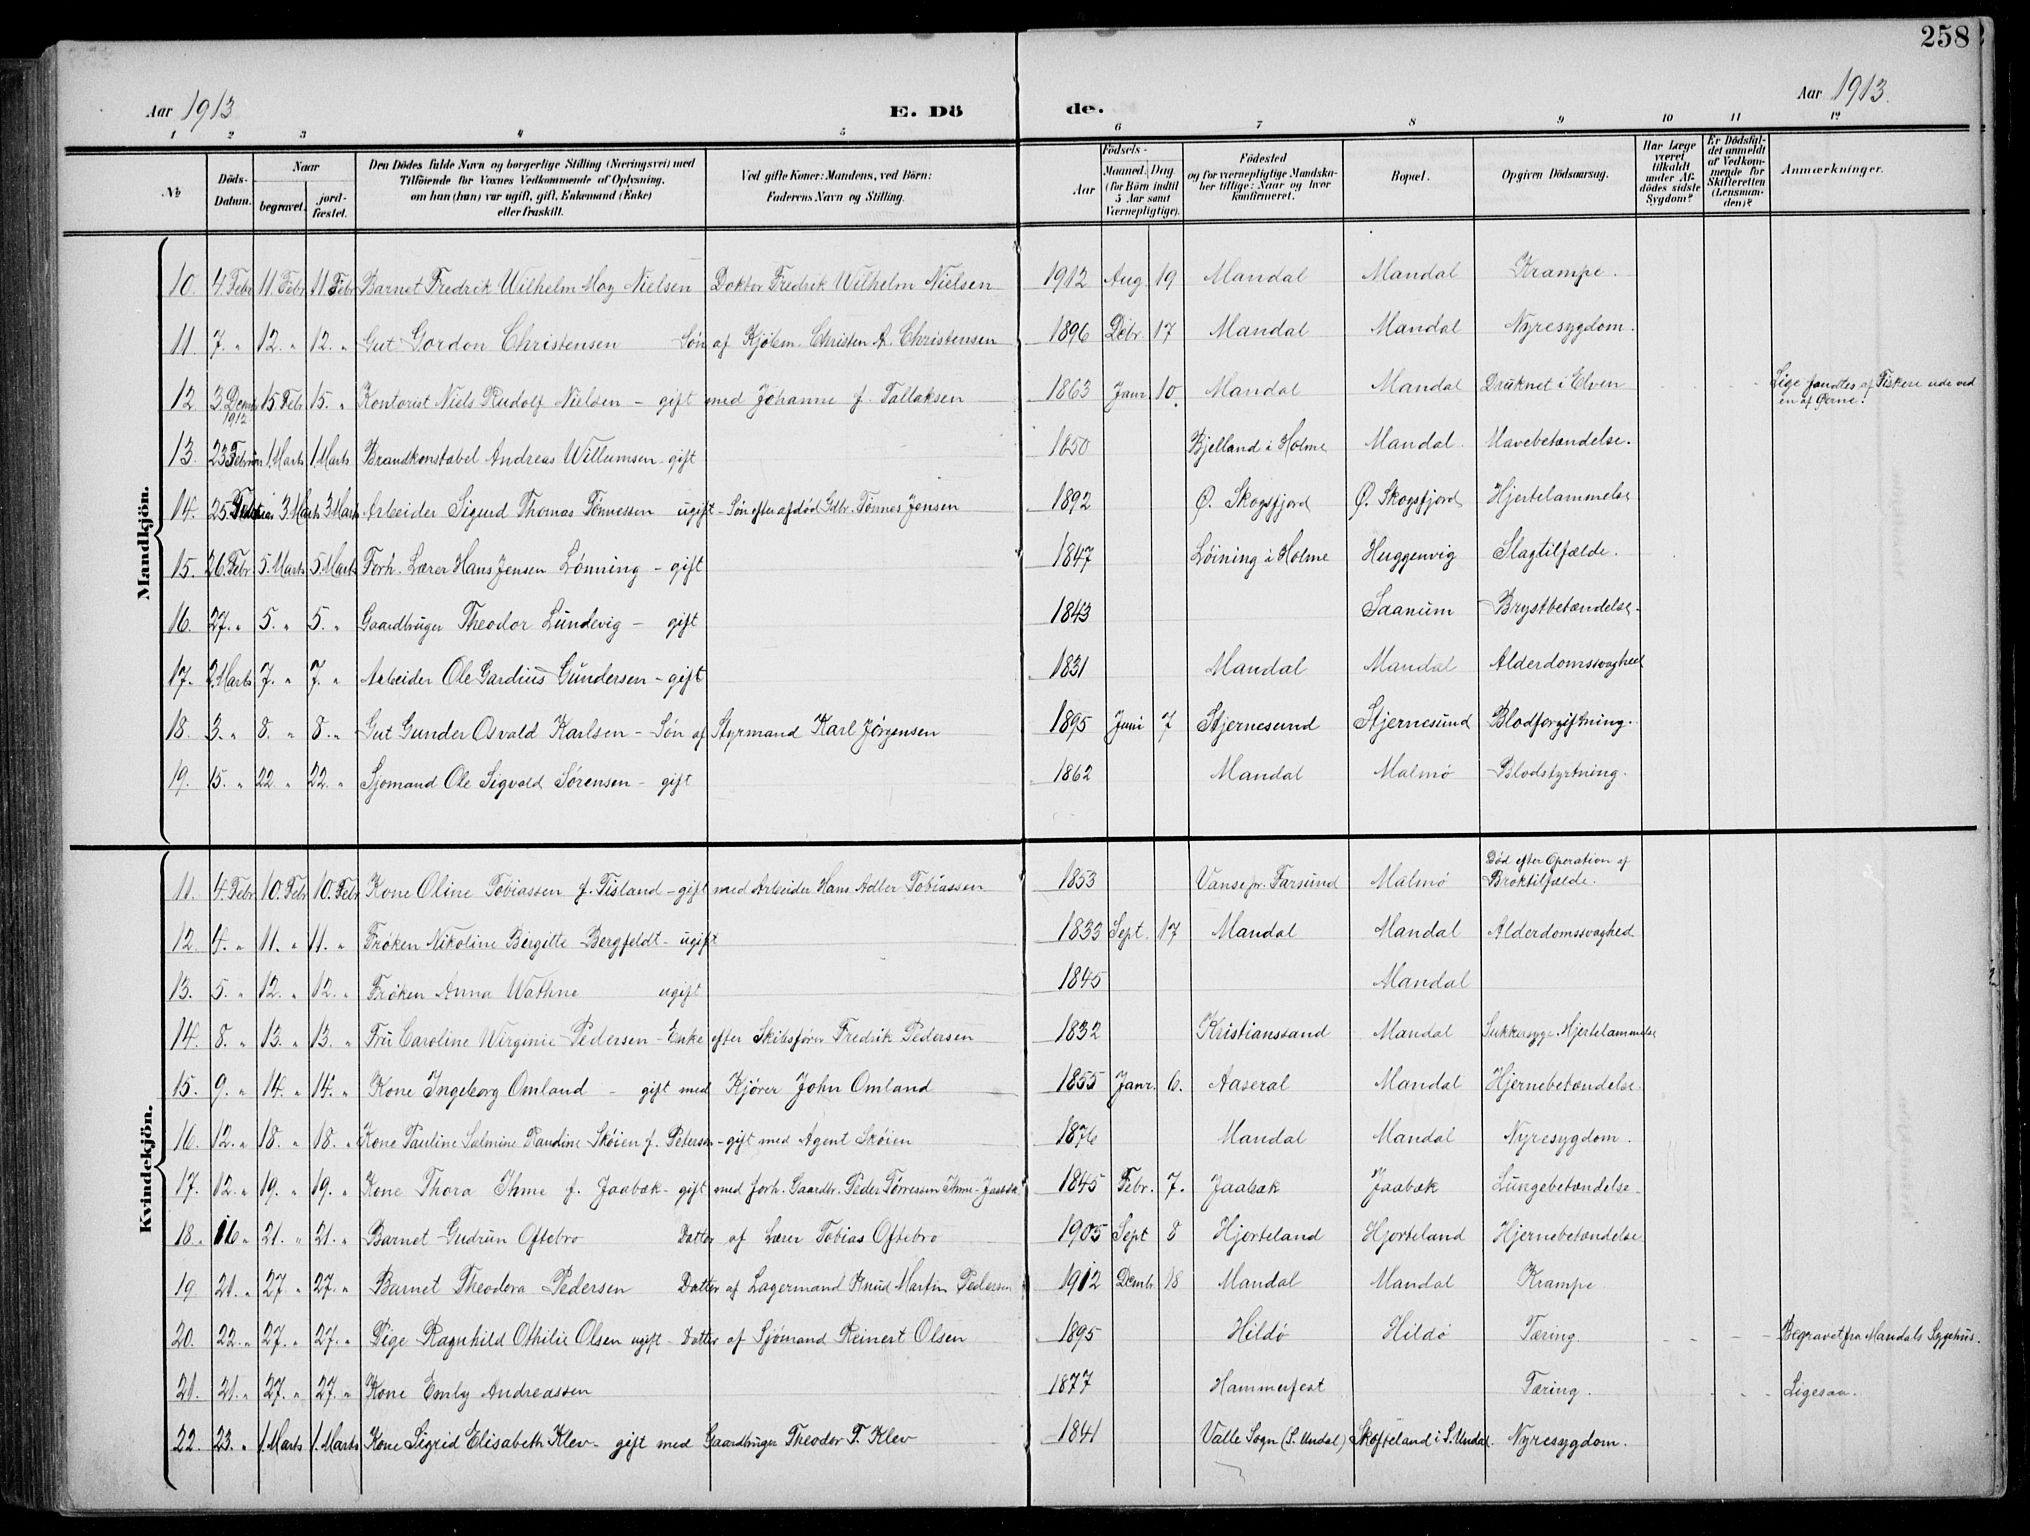 258
Aar 1913 E. Dö de. Aar 1913.
1 2 3 4 5 6 7 8 9 10 11 12
№
Döds-Datum.
Naar
begravet.
jord-fæstet.
Den Dödes fulde Navn og borgerlige Stilling (Næringsvei) med
Tilföiende for Voxnes Vedkommende af Oplysning,
om han (hun) var ugift, gift, Enkemand (Enke)
eller fraskilt.
Ved gifte Koner: Mandens, ved Börn:
Faderens Navn og Stilling.
Födsels-
Aar
Maaned. Dag.
(for Börn indtil
5 Aar samt
Værnepligtige).
Födested
og for værnepligtige Mandsko-
ber tillige: Naar og hvor
konfirmeret.
Bopæl.
Opgiven Dödsaarsag.
Har Læge
været
tilkaldt
under Af-
dödes sidste
Sygdom?
Er Dödsfal-
det anmeldt
af Vedkom-
mende for
Skifteretten
(Lensman-
den)?
Anmærkninger.
Mandkjön.
10. 4. Febr 11. Febr 11. Febr Barnet Fredrik Wilhelm Moy Nielsen Doktor Fredrik Wilhelm Nielsen 1912 Aug. 19 Mandal Mandal Krampe.
11. 7. " 12. " 12. " Gut Gordon Christensen Søn af Kjøbm. Christen A. Christensen 1896 Debr. 17 Mandal Mandal Nyresygdom.
12 3. Demb 1912 15. Febr 15. " Kontorist Niels Rudolf Nielsen - gift med Johanne f. Tallaksen 1863 Janr. 10. Mandal Mandal Druknet i Elven Lige fandtes af Fiskere ude ved
en af Øerne.
13. 23. Februar 1. Marts 1. Marts Brandkonstabel Andreas Willumsen - gift 1850 Bjelland i Holme Mandal. Mavebetændelse.
14. 25. 3. Marts 3. Marts Arbeider Sigurd Thomas Tønnessen ugift - Søn efter afdød Gdbr. Tønnes Jensen 1892 Ø. Skogsfjord Ø. Skogsfjord Hjertelammelse
15. 26. Febr 5. Marts 5. Marts Forh. Lærer Hans Jensen Lønning - gift 1847 Løining i Holme Huggenvig Slagtilfælde.
16. 27. " 5. " 5. " Gaardbruger Theodor Lundevig - gift 1843 Saanum Brystbetændelse.
17. 2. Marts 7. " 7. " Arbeider Ole Gardius Gundersen - gift 1831 Mandal Mandal Alderdomssvaghed
18. 3. " 8. " 8. " Gut Gunder Osvald Karlsen - Søn af Styrmand Karl Jørgensen 1895 Juni 7 Stjernesund Stjernesund Blodforgiftning.
19. 15. " 22. " 22. " Sjømand Ole Sigvald Sørensen - gift 1862 Mandal Malmø Blodstyrtning.
Kvindekjön.
11. 4. Febr. 10. Febr 10. Febr Kone Oline Tobiassen f. Tisland - gift med Arbeider Hans Adler Tobiassen 1853 Vanse pr. Farsund Malmø Død efter Operation af
Broktilfælde.
12. 4. " 11. " 11. " Frøken Nikoline Birgitte Bergfeldt - ugift 1833 Sept. 17 Mandal Mandal Alderdomssvaghed
13. 5. " 12. " 12. " Frøken Anna Wathne ugift 1845 Mandal
14. 8. " 13. " 13. " Fru Caroline Wirginie Pedersen - Enke efter Skibsfører Fredrik Pedersen 1832 Kristianssand Mandal Sukkersyge. Hjertelammelse
15. 9. " 14. " 14. " Kone Ingeborg Omland - gift med Kjører John Omland 1855 Janr. 6. Aaseral Mandal Hjernebetændelse.
16. 12. " 18. " 18. " Kone Pauline Salmine Skøien f. Petersen - gift med Agent Skøien 1876 Mandal Mandal Nyresygdom.
17. 12. " 19. " 19. " Kone Thora Ihme f. Jaabæk - gift med forh. Gaardbr. Peder Tørressen Ihme - Jaabæk 1845 Febr. 7. Jaabæk Jaabæk Lungebetændelse.
18. 16. " 21. " 21. " Barnet Gudrun Oftebro Datter af Lærer Tobias Oftebro 1905 Sept 8 Hjorteland Hjorteland Hjernebetændelse
19. 21. " 27. " 27. " Barnet Theodora Pedersen Datter af Lagermand Knud Martin Pedersen 1912 Demb. 18 Mandal Mandal Krampe
20. 22. " 27. " 27. " Pige Ragnhild Othilie Olsen ugift - Datter af Sjømand Reinert Olsen 1895 Hildø Hildø Tæring. Begravet fra Mandals Sygehus.
21. 21. " 27. " 27. " Kone Emly Andreassen 1877 Hammerfest Tæring. Ligesaa.
22. 23. " 1. Marts 1. Marts Kone Sigrid Elisabeth Klev - gift med Gaardbruger Theodor T. Klev 1841 Valle Sogn (S. Undal) Skofteland i S. Undal. Nyresygdom.